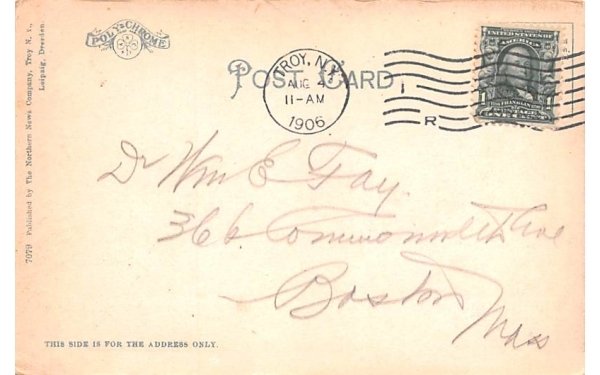 POLY-CHROME
POST CARD
TROY, N.Y.
AUG 4
11-AM
1906
I
R
UNITED STATES OF AMERICA
1 FRANKLIN 1
POSTAGE
ONE CENT
Dr Wm E Fay.
366 Commonwealth Ave
Boston
Mass
7079 Published by The Northern News Company, Troy N. Y.,
Leipzig, Dresden.
THIS SIDE IS FOR THE ADDRESS ONLY.